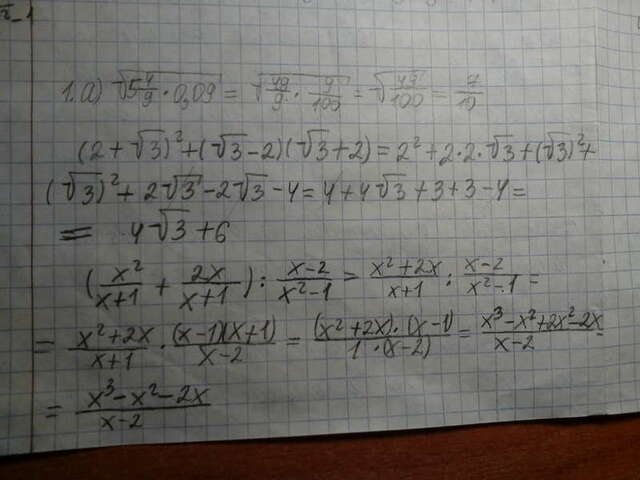 1.а) √(5 4/9 · 0,09) = √(49/9 · 9/100) = √(49/100) = 7/10
(2 + √3)² + (√3 - 2)(√3 + 2) = 2² + 2·2·√3 + (√3)² +
(√3)² + 2√3 - 2√3 - 4 = 4 + 4√3 + 3 + 3 - 4 =
= 4√3 + 6
(x²/(x+1) + 2x/(x+1)) : (x-2)/(x²-1) = (x²+2x)/(x+1) : (x-2)/(x²-1) =
= (x²+2x)/(x+1) · (x-1)(x+1)/(x-2) = (x²+2x)·(x-1)/(1·(x-2)) = (x³-x²+2x²-2x)/(x-2) =
= (x³-x²-2x)/(x-2)